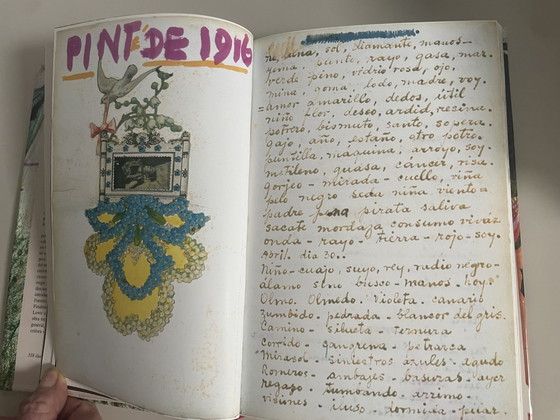 PINTÉ DE 1916
no, luna, sol, diamante, manos-
yema, punte, rayo, gasa, mar.
verde pino, vidrio rosa, ojo,
mina, goma, lodo, madre, voy.
=amor amarillo, dedos, útil
niño flor, deseo, ardid, resina.
potrero, bismuto, santo, sopera.
gajo, año, estaño, otro potro.
puntilla, maquina, arroyo, soy.
metileno, guasa, cáncer, risa.
gorjeo - mirada - cuello, viña
pelo negro seda niña viento =
padre pena pirata saliva
sacate mordaza consumo vivaz
onda - rayo - tierra - rojo - soy.
Abril. dia 30.
Niño - cuajo, suyo, rey, radio negro -
álamo sino busco - manos. hoy.
Olmo. Olmedo. Violeta. canario
Zumbido. pedrada - blancor del gris.
Camino - silueta - ternura
corrido - gangrena - petrarca
Mirasol - siniestros azules - agudo
Romeros - ambajes - basuras - ayer
regazo - tumbando, arrimo -
visiones - iluso, dormida, pilar.